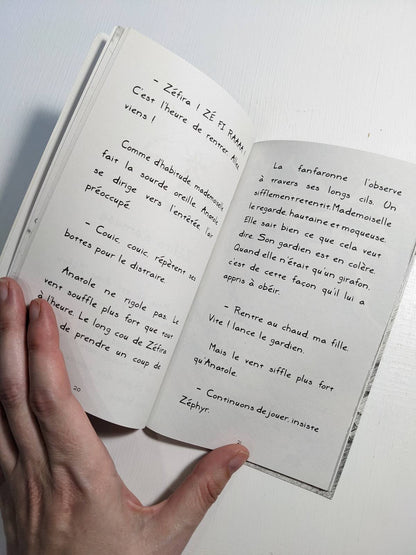 - Zéfira ! ZÉ FI RAAAA
C'est l'heure de rentrer. Allez,
viens !
Comme d'habitude mademoiselle
fait la sourde oreille. Anatole
se dirige vers l'entêtée l'air
préoccupé.
- Couic, couic, répètent ses
bottes pour le distraire.
Anatole ne rigole pas. Le
vent souffle plus fort que tout
à l'heure. Le long cou de Zéfira
de prendre un coup de
20
La fanfaronne l'observe
à travers ses longs cils. Un
sifflement retentit. Mademoiselle
le regarde hautaine et moqueuse.
Elle sait bien ce que cela veut
dire. Son gardien est en colère.
Quand elle n'était qu'un girafon,
c'est de cette façon qu'il lui a
appris à obéir.
- Rentre au chaud ma fille.
Vite ! lance le gardien.
Mais le vent siffle plus fort
qu'Anatole.
- Continuons de jouer, insiste
Zéphyr.